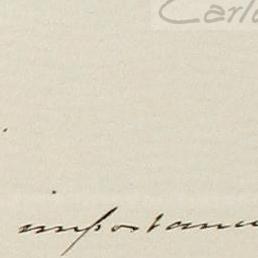 Carlo
importanc